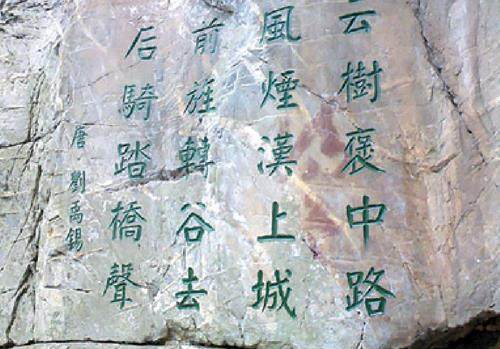 云樹褒中路
風煙漢上城
前旌轉谷去
后騎踏橋聲
唐 劉禹錫